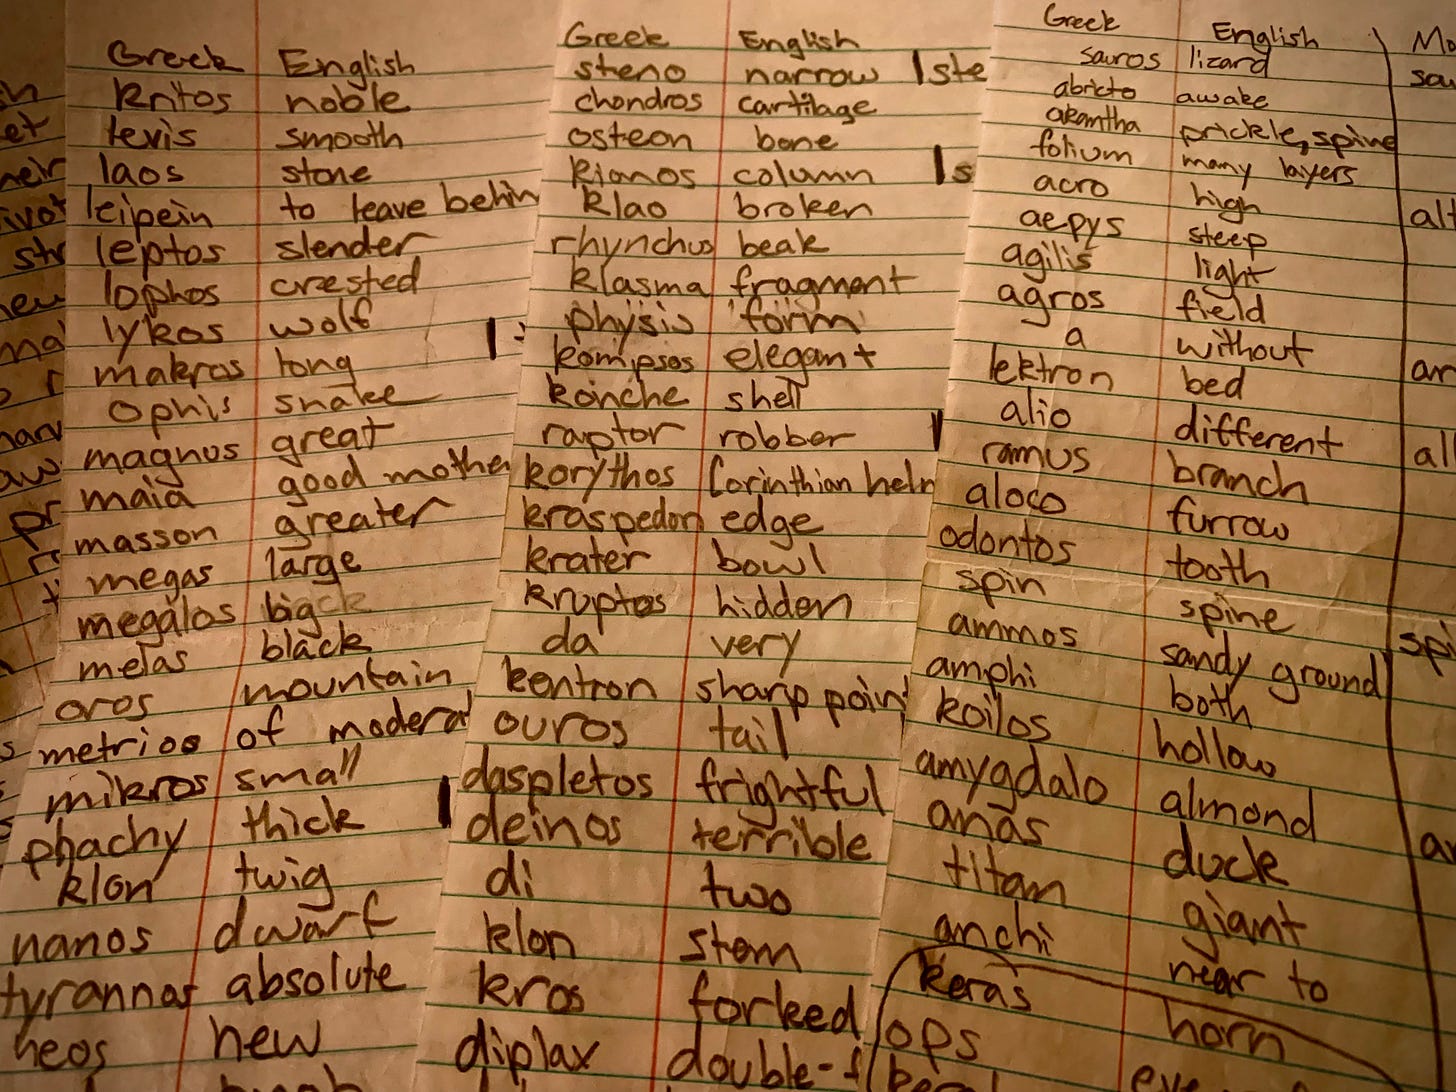 Greek English
kritos noble
levis smooth
laos stone
leipein to leave behin
leptos slender
lophos crested
lykos wolf
makros long
ophis snake
magnus great
maia good mothe
masson greater
megas large
megalos big
melas black
oros mountain
metrios of modera
mikros small
phachy thick
klon twig
nanos dwarf
tyrannos absolute
neos new
Greek English
steno narrow
chondros cartilage
osteon bone
kianos column
klao broken
rhynchus beak
klasma fragment
physis form
kompsos elegant
konche shell
raptor robber
korythos Corinthian helm
kraspedon edge
krater bowl
kruptos hidden
da very
kentron sharp point
ouros tail
daspletos frightful
deinos terrible
di two
klon stem
kros forked
diplax double-f
Greek English
sauros lizard
abricto awake
akantha prickle, spine
folium many layers
acro high
aepys steep
agilis light
agros field
a without
lektron bed
alio different
ramus branch
aloco furrow
odontos tooth
spin spine
ammos sandy ground
amphi both
koilos hollow
amygdalo almond
anas duck
titan giant
anchi near to
keras horn
ops eye